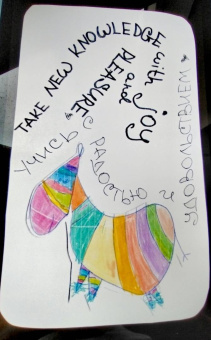 TAKE NEW KNOWLEDGE with joy
and
PLEASURE
УЧИСЬ
С РАДОСТЬЮ
И
УДОВОЛЬСТВИЕМ